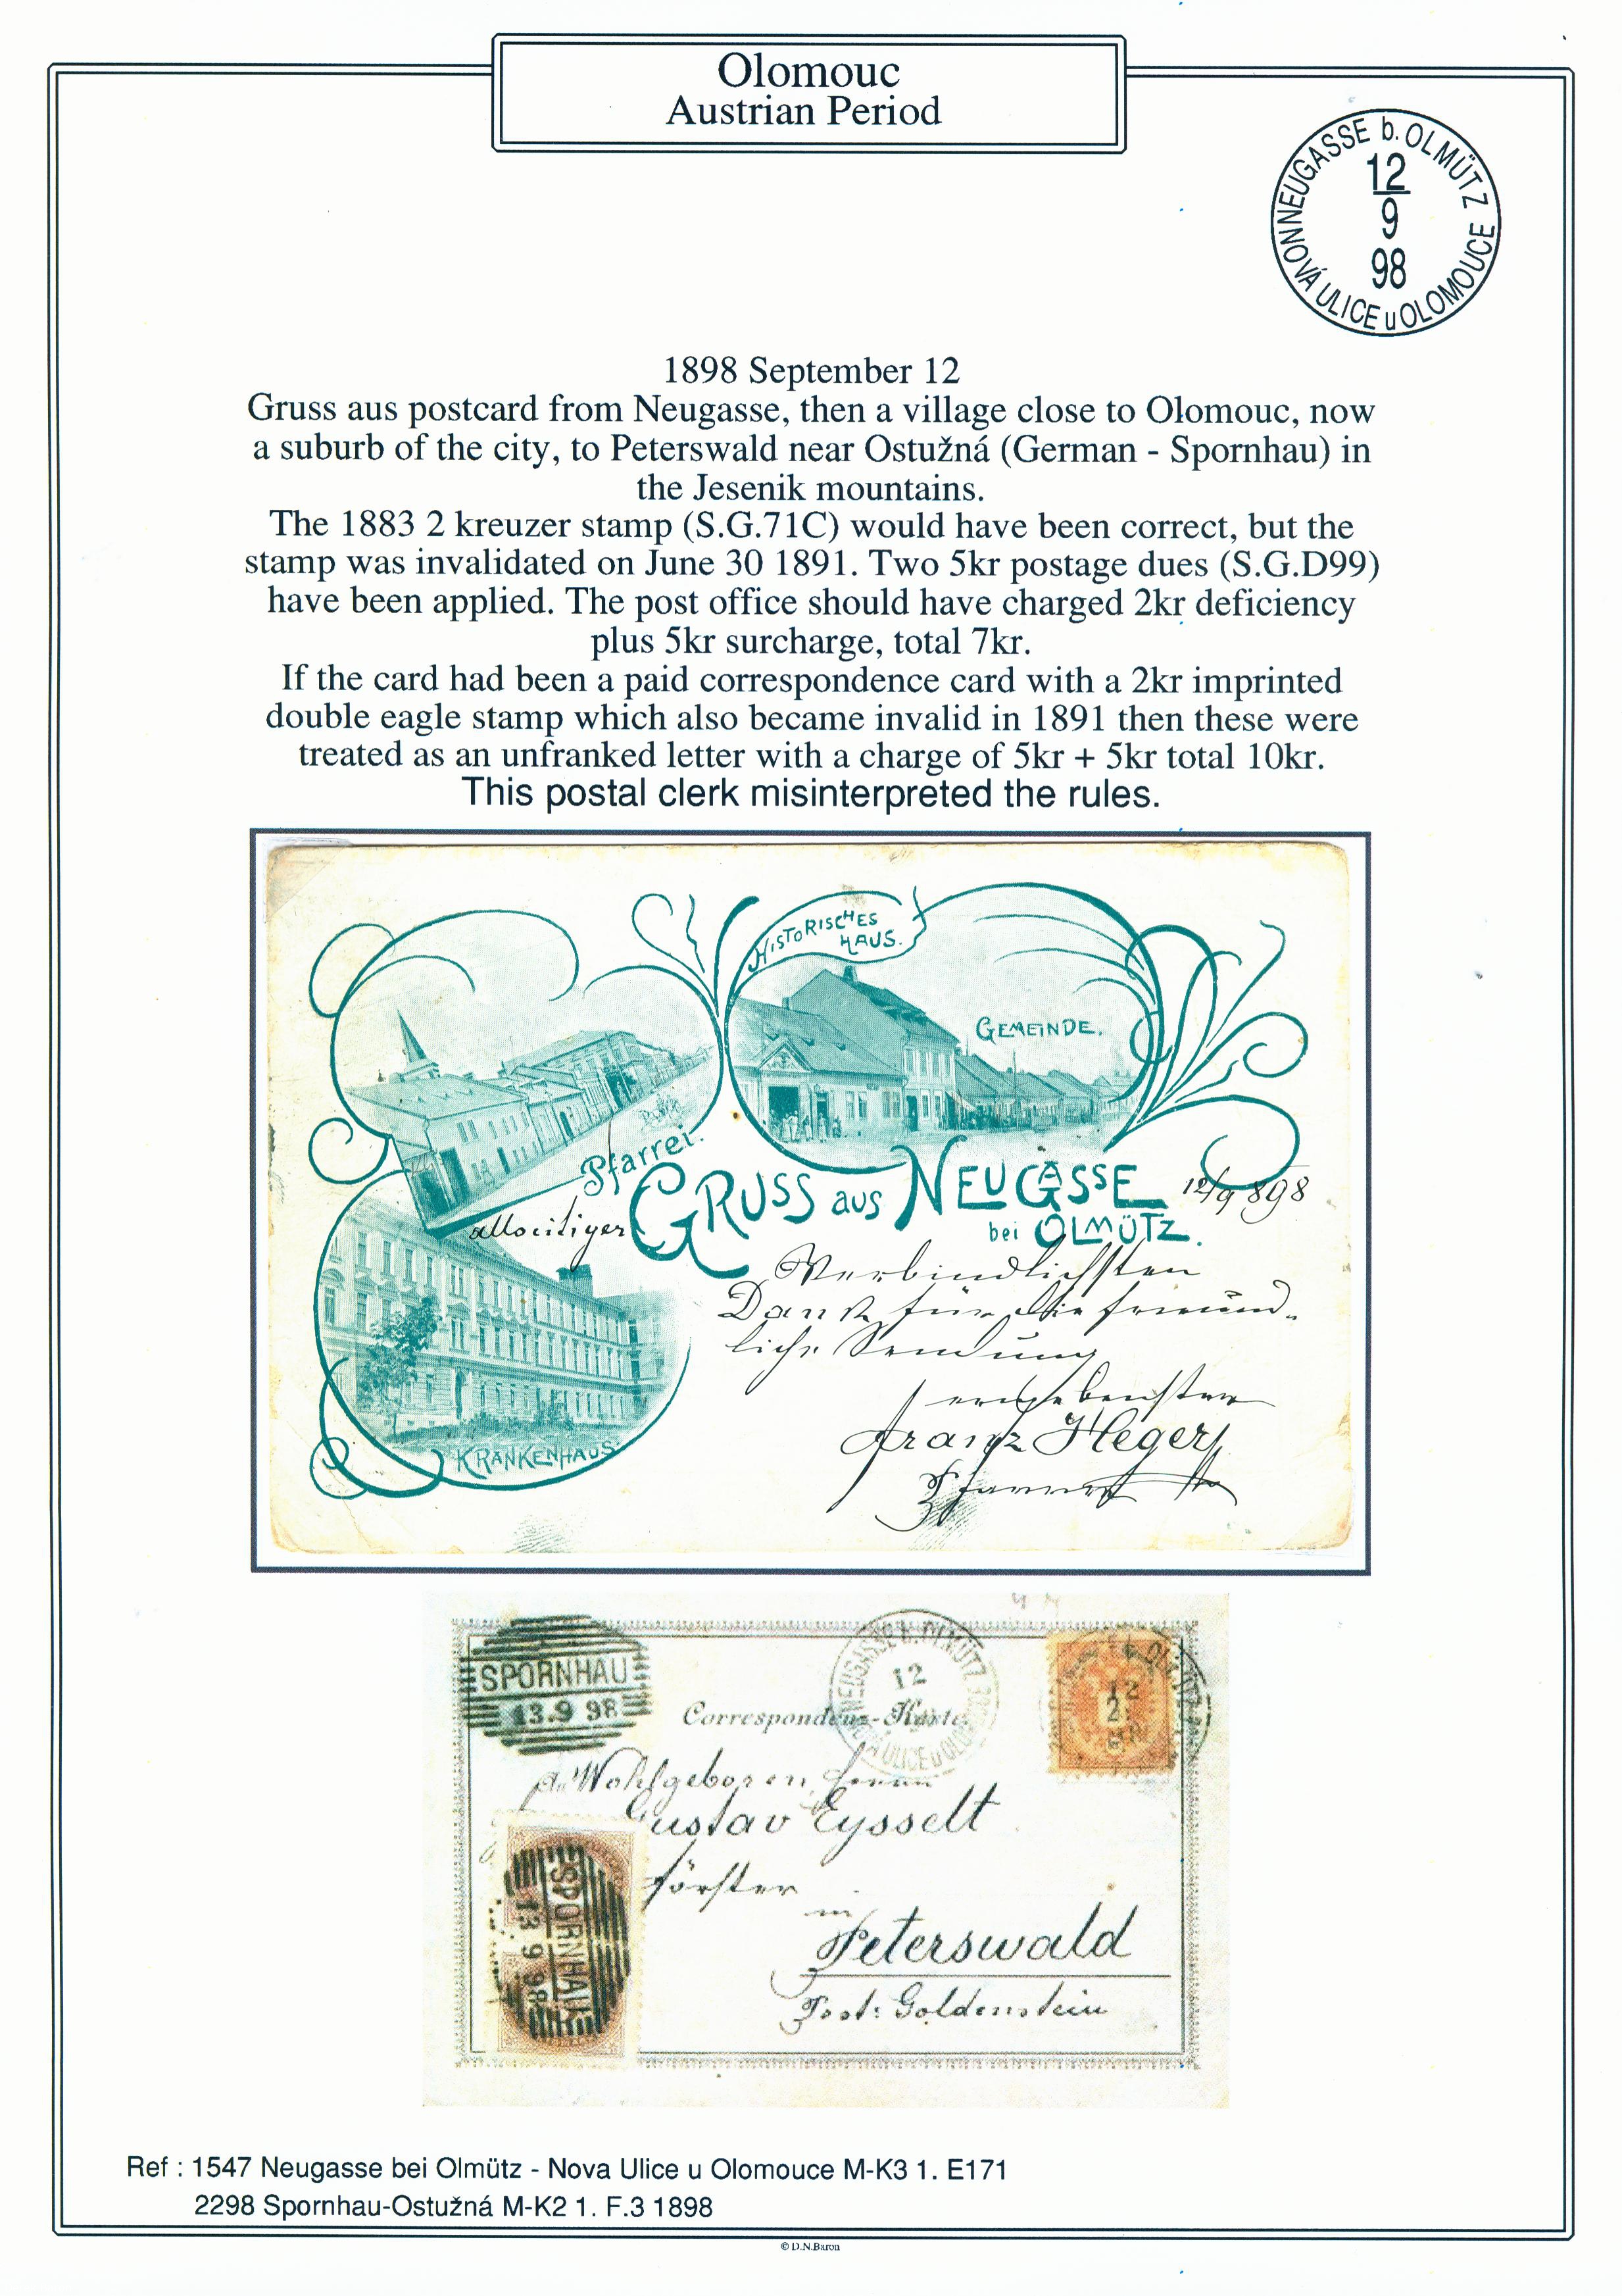 Olomouc
Austrian Period
NEUGASSE b. OLMÜTZ
12
9
98
NOVÁ ULICE u OLOMOUCE
1898 September 12
Gruss aus postcard from Neugasse, then a village close to Olomouc, now
a suburb of the city, to Peterswald near Ostužná (German - Spornhau) in
the Jesenik mountains.
The 1883 2 kreuzer stamp (S.G.71C) would have been correct, but the
stamp was invalidated on June 30 1891. Two 5kr postage dues (S.G.D99)
have been applied. The post office should have charged 2kr deficiency
plus 5kr surcharge, total 7kr.
If the card had been a paid correspondence card with a 2kr imprinted
double eagle stamp which also became invalid in 1891 then these were
treated as an unfranked letter with a charge of 5kr + 5kr total 10kr.
This postal clerk misinterpreted the rules.
HISTORISCHES
HAUS.
GEMEINDE.
Pfarrei.
GRUSS aus NEUGASSE
bei OLMÜTZ.
12/9 898
Verbindlichsten
Dank für die freund-
liche Sendung
ergebenster
Franz Heger
Pfarrer
KRANKENHAUS
SPORNHAU
13.9 98
NEUGASSE b. OLMÜTZ
12
NOVÁ ULICE u OLOMOUCE
Correspondenz-Karte
2
Wohlgeboren Herrn
Gustav Eysselt
Förster
in
Peterswald
Post: Goldenstein
SPORNHAU
13 9 98
Ref : 1547 Neugasse bei Olmütz - Nova Ulice u Olomouce M-K3 1. E171
2298 Spornhau-Ostužná M-K2 1. F.3 1898
© D.N.Baron